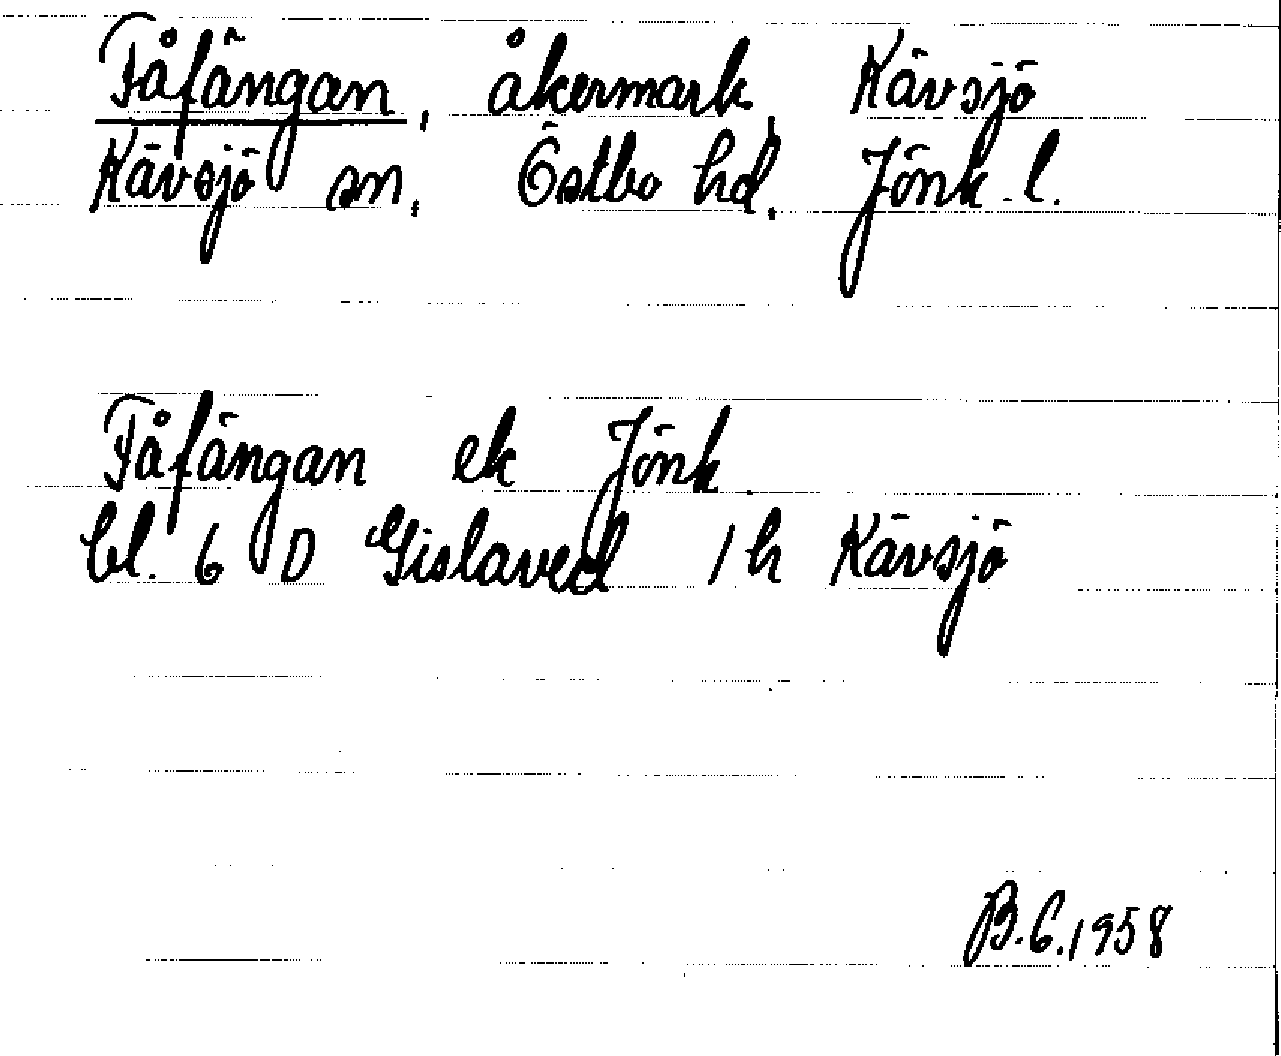 Fåfängan, åkermark, Kävsjö
Kävsjö sn, Östbo hd, Jönk. l.
Fåfängan ek Jönk.
bl. 6 D Gislaved 1 h Kävsjö
B.G.1958